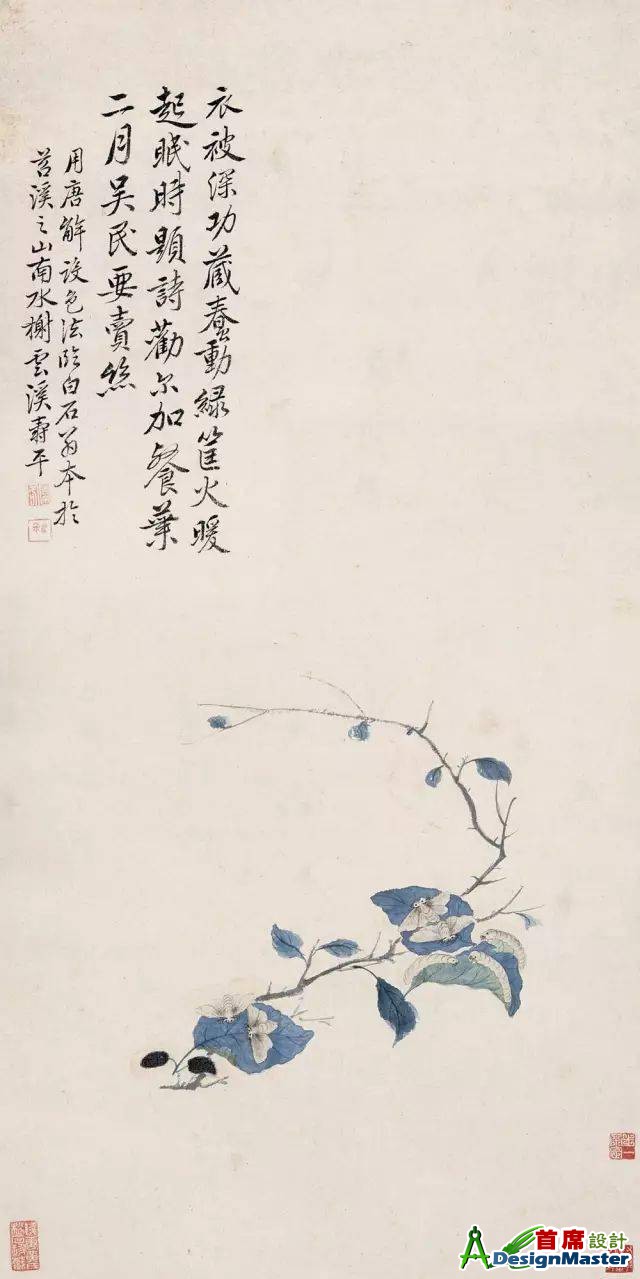 衣被深功藏蠢動綠筐火暖
起眠時題詩勸尔加餐葉
二月吴民要賣絲
用唐解設色法臨白石翁本於
苕溪之山南水榭雲溪壽平
首席設計
DesignMaster